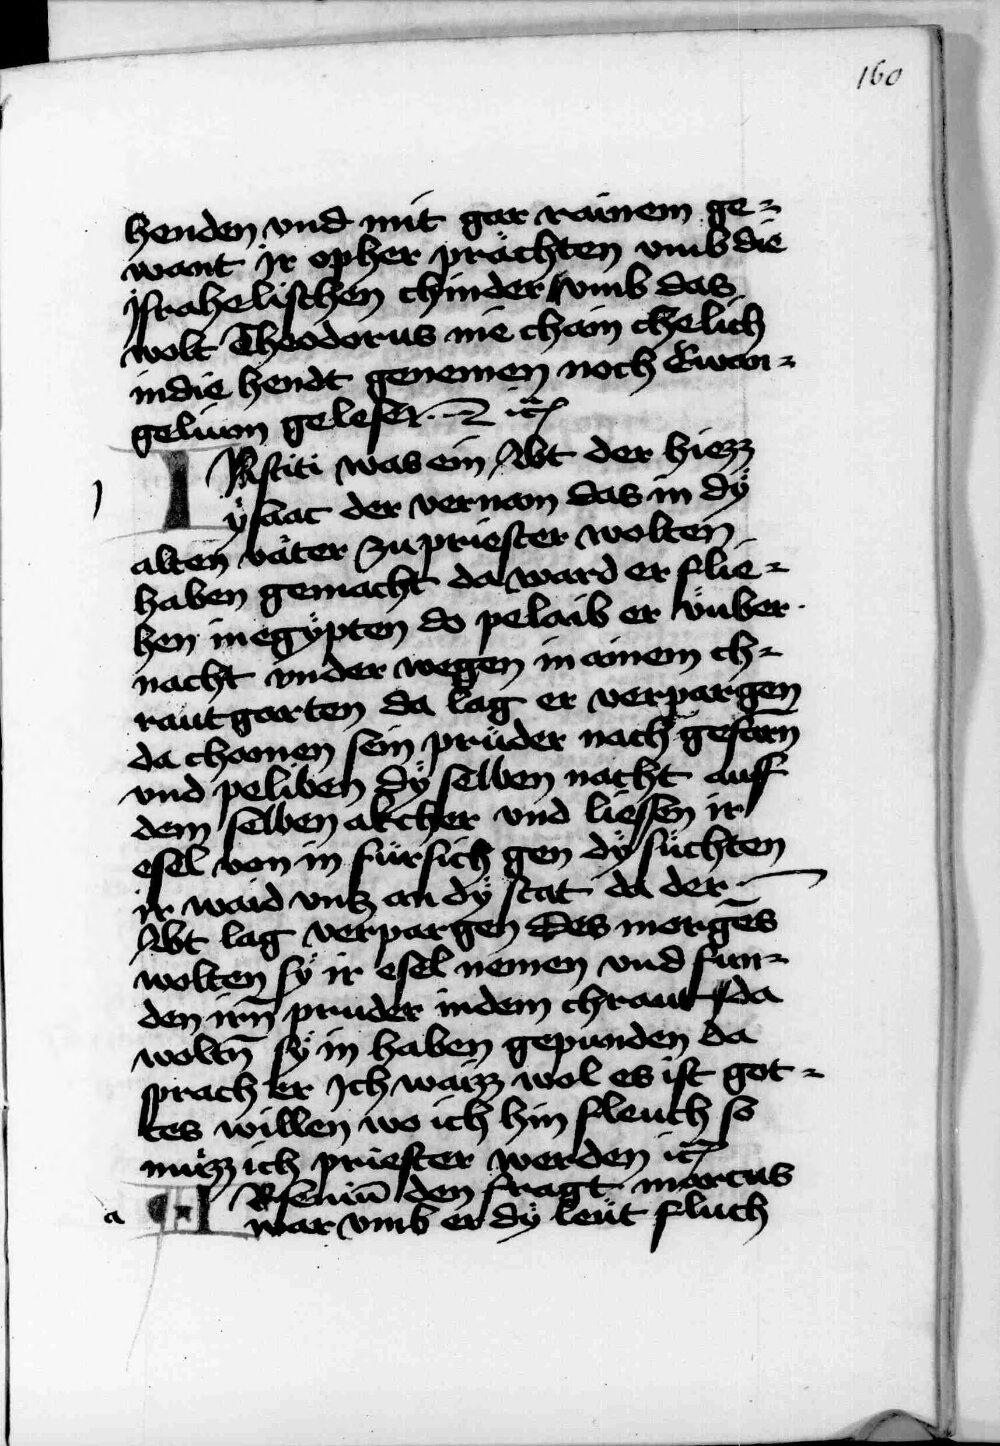 160
henden vnd mit gar rainem ge=
want Jr opher prächten vmb die
jsrahelischen chinder vmb das
wolt Theodorus nie chain chelich
indie hendt genemen noch Ewan=
gelium gelesen. itc̃
I Nstiti was ein Abt der hiezz
j ÿsaac der vernam das in dÿ
alten väter zu priester wolten
haben gemacht da ward er flie=
hen in egÿpten do pelaib er vͤuber
nacht vnder wegen in ainem ch=
rautgarten da lag er verpargen
da chomen sein pruͤder nach gefarn̄
vnd peliben dÿ selben nacht auff
dem selben akcher vnd liessen ir
esel von in fuͤrsich gen dÿ suͤchten
ir waid vntz an dÿ stat da der
Abt lag verpargen Des morgēs
wolten sÿ ir esel nemen vnd fun=
den irn̄ pruder indem chraut da
woltn̄ sÿ in haben gepunden da
sprach er Jch waizz wol es ist got=
tes willen wo ich hin fleuch so
muͤzz ich priester werden itc̃
A Rseniū den fragt marcus
a war vmb er dÿ leuͤt fluch